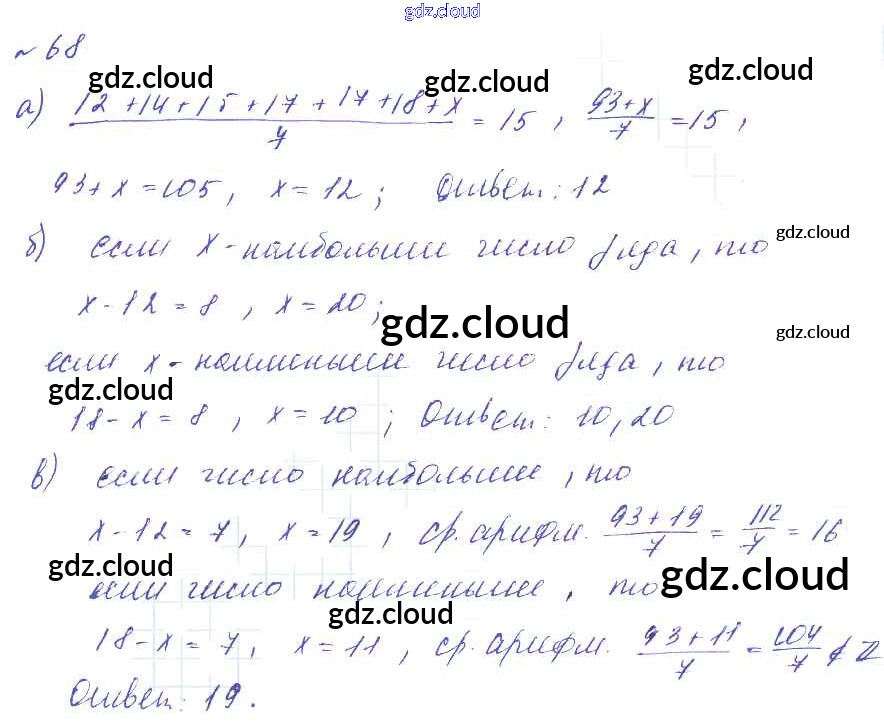 gdz.cloud
№ 68
gdz.cloud gdz.cloud gdz.cloud
а) (12+14+15+17+17+18+x)/7 = 15 , (93+x)/7 = 15 ,
93+x=105, x=12; Ответ: 12
б) если x-наибольшее число ряда, то gdz.cloud
x-12=8 , x=20;
gdz.cloud gdz.cloud
если x-наименьшее число ряда, то
gdz.cloud
18-x=8 , x=10 ; Ответ: 10, 20
в) если число наибольшее, то
x-12=7, x=19 , ср. арифм. (93+19)/7 = 112/7 = 16
gdz.cloud gdz.cloud
если число наименьшее, то
gdz.cloud
18-x=7, x=11 , ср. арифм. (93+11)/7 = 104/7 ∉ Z
Ответ: 19.